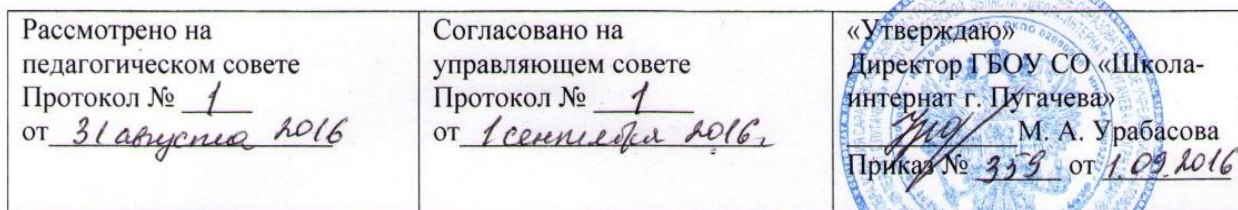 Рассмотрено на
педагогическом совете
Протокол № 1
от 31 августа 2016
Согласовано на
управляющем совете
Протокол № 1
от 1 сентября 2016г
«Утверждаю»
Директор ГБОУ СО «Школа-
интернат г. Пугачева»
М. А. Урабасова
Приказ № 359 от 1.09.2016